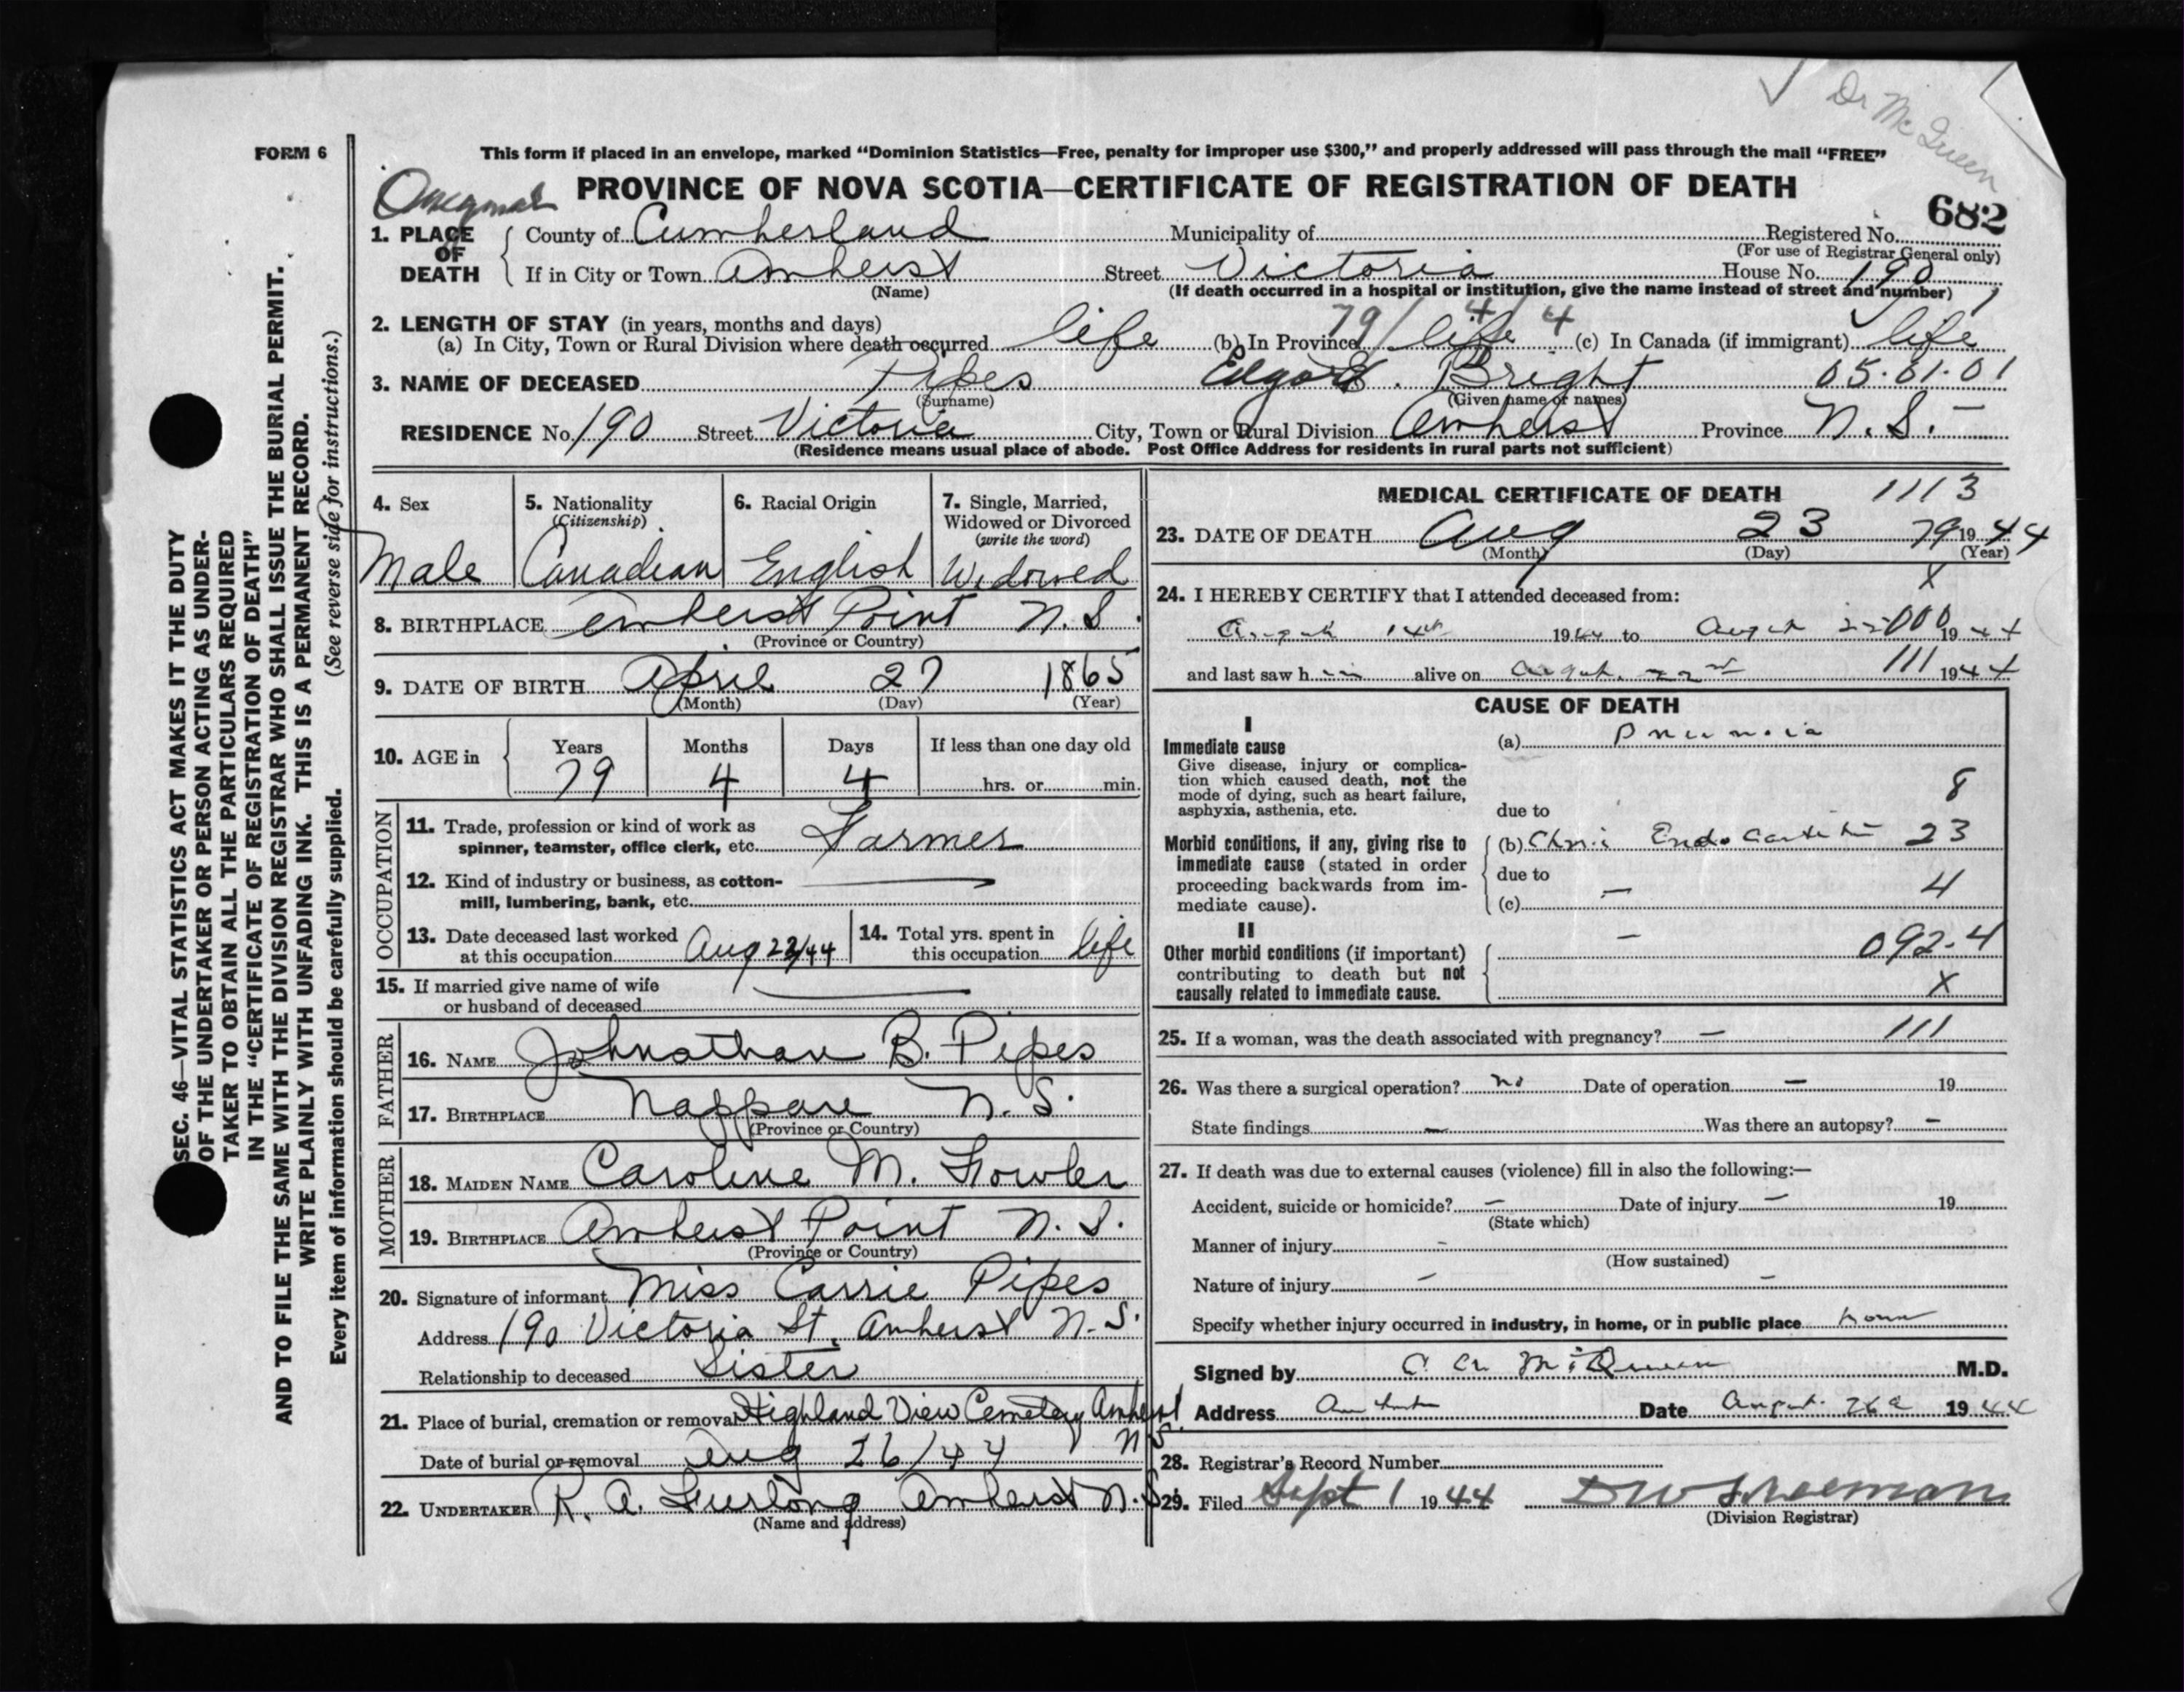 Dr McQueen
FORM 6
This form if placed in an envelope, marked “Dominion Statistics—Free, penalty for improper use $300,” and properly addressed will pass through the mail “FREE”
PROVINCE OF NOVA SCOTIA—CERTIFICATE OF REGISTRATION OF DEATH
682
1. PLACE OF DEATH County of Cumberland Municipality of Registered No.
(For use of Registrar General only)
If in City or Town Amherst Street Victoria House No. 190
(Name) (If death occurred in a hospital or institution, give the name instead of street and number)
2. LENGTH OF STAY (in years, months and days) 79/4/4
(a) In City, Town or Rural Division where death occurred life (b) In Province life (c) In Canada (if immigrant) life
3. NAME OF DECEASED Pipes Edgar Bright 05.01.01
(Surname) (Given name or names)
RESIDENCE No. 190 Street Victoria City, Town or Rural Division Amherst Province N.S.
(Residence means usual place of abode. Post Office Address for residents in rural parts not sufficient)
4. Sex
Male
5. Nationality
(Citizenship)
Canadian
6. Racial Origin
English
7. Single, Married,
Widowed or Divorced
(write the word)
Widowed
8. BIRTHPLACE Amherst Point N.S.
(Province or Country)
9. DATE OF BIRTH April 27 1865
(Month) (Day) (Year)
10. AGE in Years Months Days If less than one day old
79 4 4 hrs. or min.
OCCUPATION
11. Trade, profession or kind of work as
spinner, teamster, office clerk, etc. Farmer
12. Kind of industry or business, as cotton-
mill, lumbering, bank, etc. —
13. Date deceased last worked
at this occupation Aug 22/44
14. Total yrs. spent in
this occupation life
15. If married give name of wife
or husband of deceased —
FATHER
16. NAME Johnathan B. Pipes
17. BIRTHPLACE Nappan N.S.
(Province or Country)
MOTHER
18. MAIDEN NAME Caroline M. Fowler
19. BIRTHPLACE Amherst Point N.S.
(Province or Country)
20. Signature of informant Miss Carrie Pipes
Address 190 Victoria St. Amherst N.S.
Relationship to deceased Sister
21. Place of burial, cremation or removal Highland View Cemetery Amherst N.S.
Date of burial or removal Aug 26/44
22. UNDERTAKER R. A. Furlong Amherst N.S.
(Name and address)
MEDICAL CERTIFICATE OF DEATH 1113
23. DATE OF DEATH Aug 23 79 1944
(Month) (Day) (Year)
X
24. I HEREBY CERTIFY that I attended deceased from:
August 14th 1944 to August 22 000 1944
and last saw him alive on August 22nd 111 1944
CAUSE OF DEATH
I
Immediate cause
Give disease, injury or complica-
tion which caused death, not the
mode of dying, such as heart failure,
asphyxia, asthenia, etc.
(a) Pneumonia
8
due to
Morbid conditions, if any, giving rise to
immediate cause (stated in order
proceeding backwards from im-
mediate cause).
(b) Endocarditis 23
due to
4
(c) —
II
Other morbid conditions (if important)
contributing to death but not
causally related to immediate cause.
— 092-4
X
25. If a woman, was the death associated with pregnancy? — 111
26. Was there a surgical operation? no Date of operation — 19
State findings — Was there an autopsy? —
27. If death was due to external causes (violence) fill in also the following:—
Accident, suicide or homicide? — Date of injury — 19
(State which)
Manner of injury -
(How sustained)
Nature of injury — —
Specify whether injury occurred in industry, in home, or in public place
Signed by McQueen M.D.
Address Amherst Date August 1944
28. Registrar's Record Number
29. Filed Sept 1 1944
(Division Registrar)
SEC. 46—VITAL STATISTICS ACT MAKES IT THE DUTY
OF THE UNDERTAKER OR PERSON ACTING AS UNDER-
TAKER TO OBTAIN ALL THE PARTICULARS REQUIRED
IN THE “CERTIFICATE OF REGISTRATION OF DEATH”
AND TO FILE THE SAME WITH THE DIVISION REGISTRAR WHO SHALL ISSUE THE BURIAL PERMIT.
WRITE PLAINLY WITH UNFADING INK. THIS IS A PERMANENT RECORD.
Every item of information should be carefully supplied. (See reverse side for instructions.)